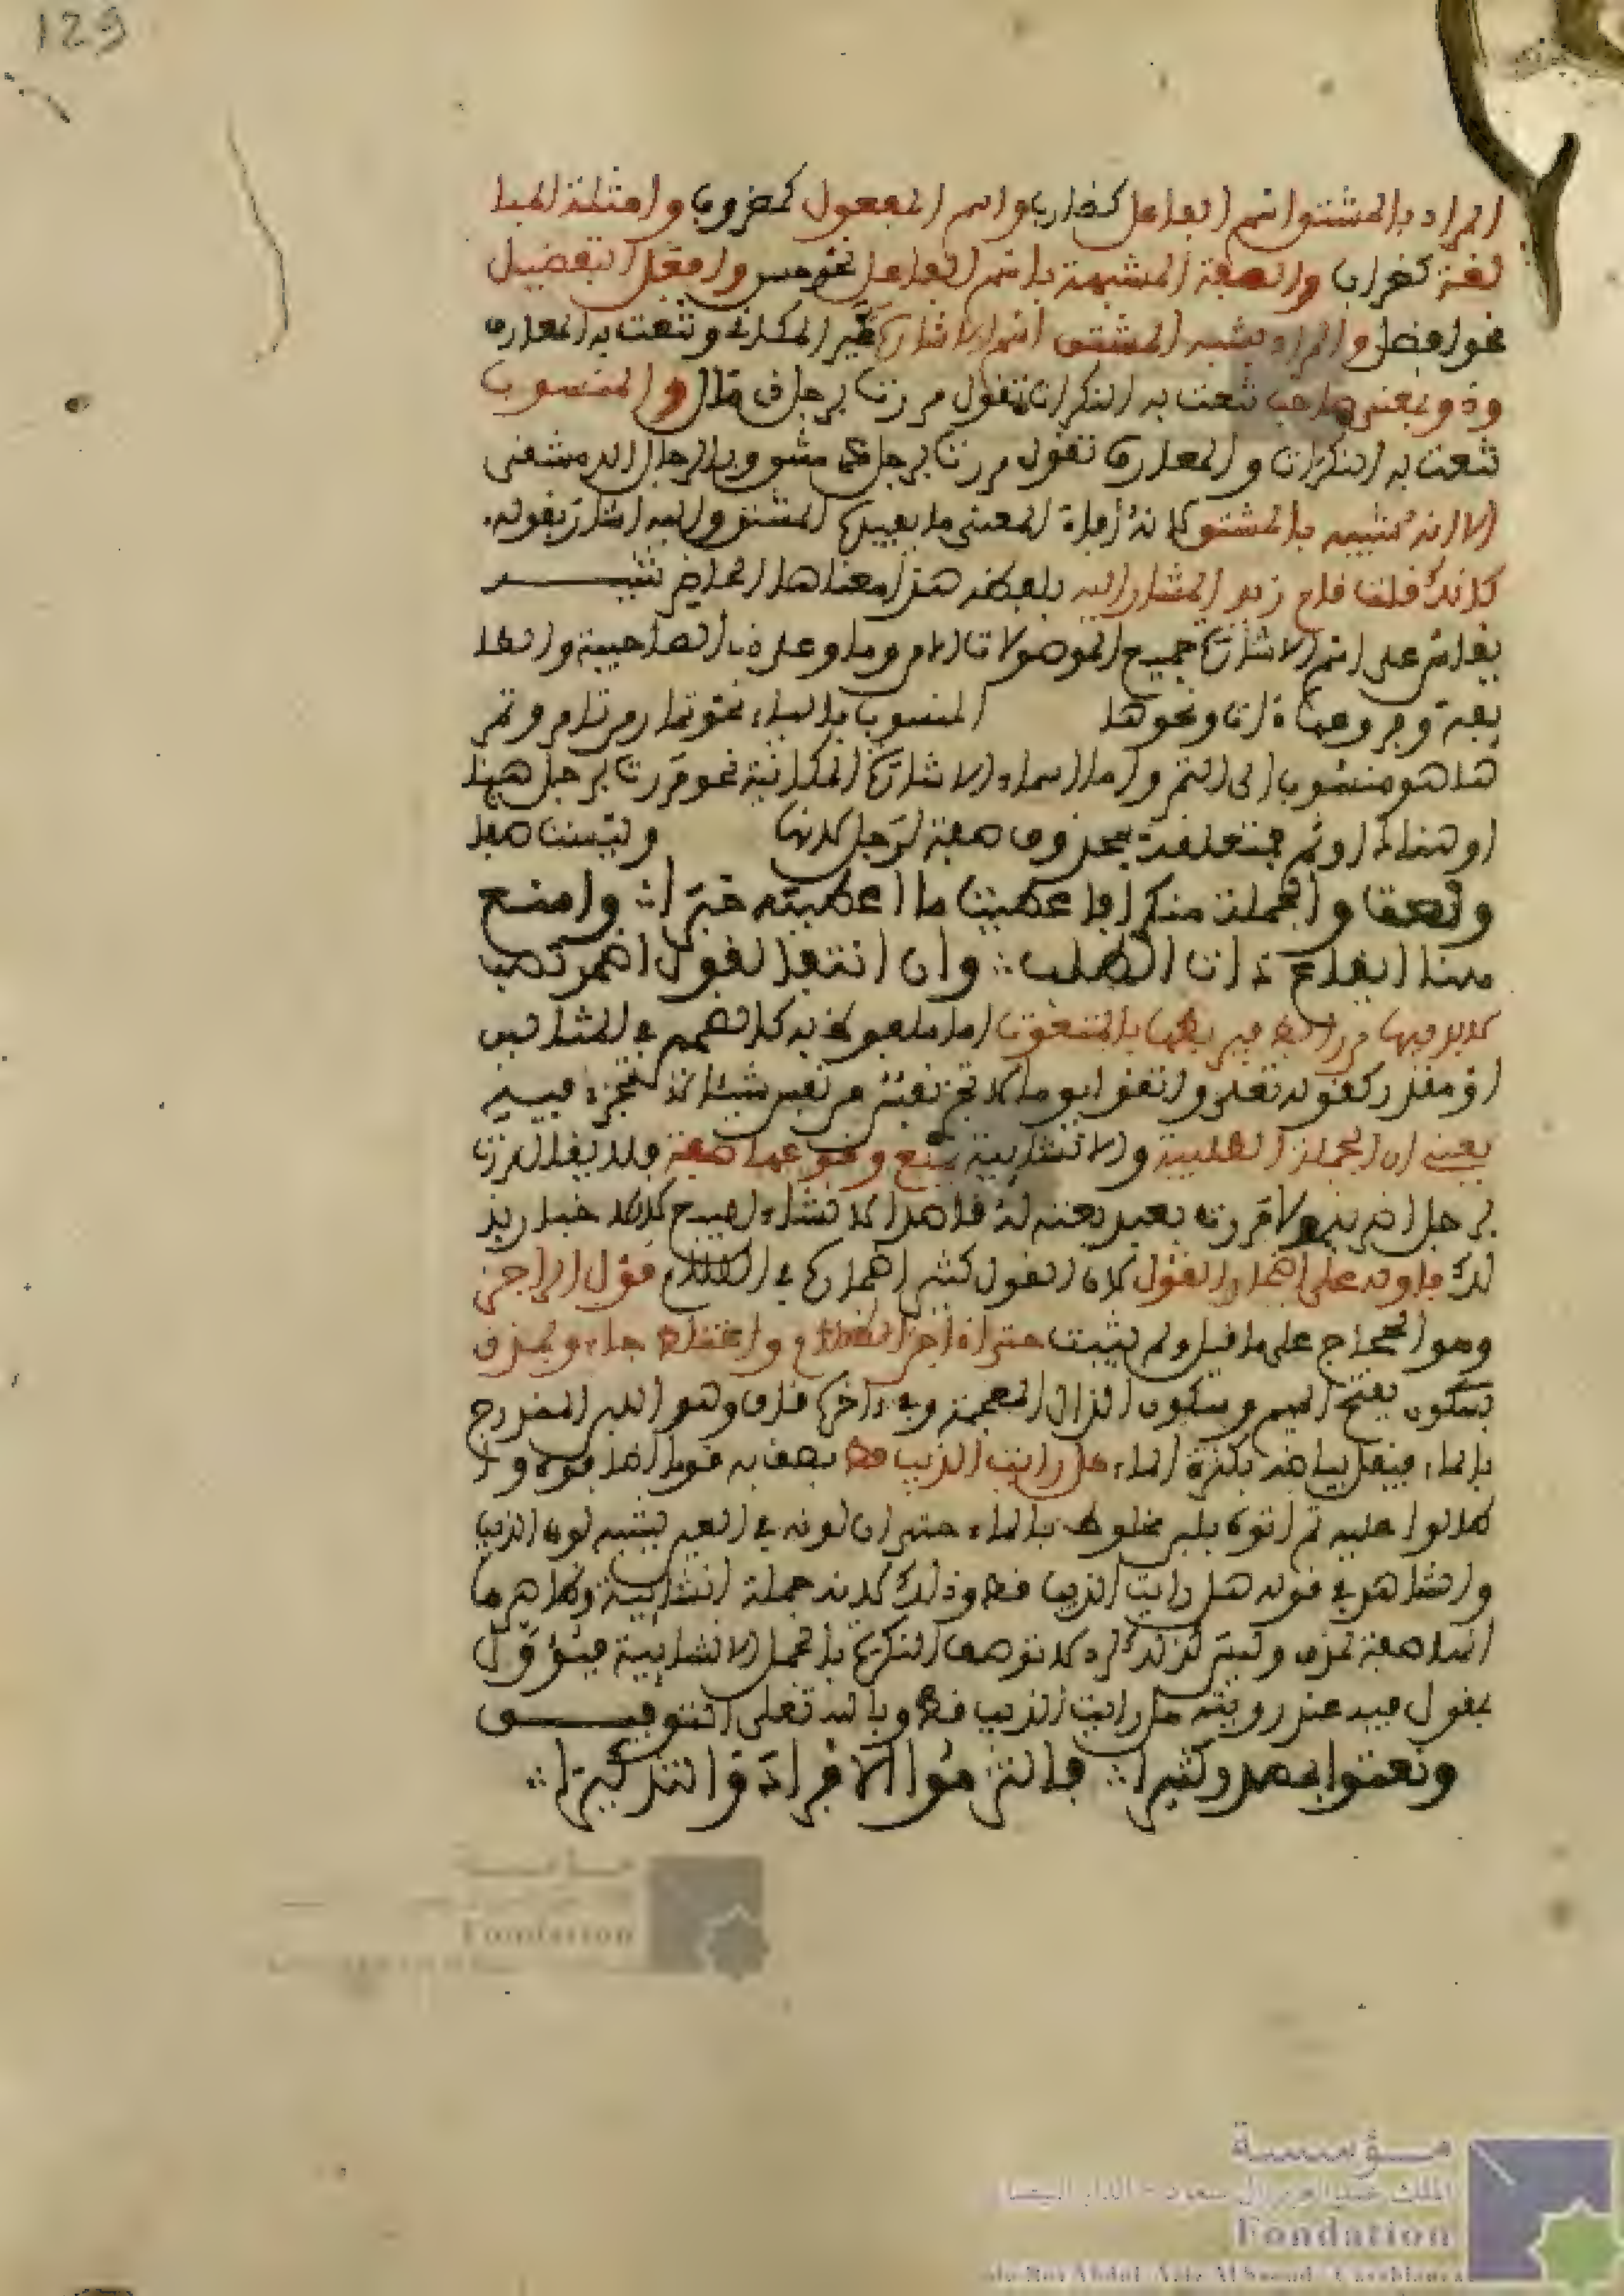 129
المراد بالمشتق اسم الفاعل كضارب واسم المفعول كمضروب وامثلة المبا
لغة كضراب والصفة المشبهة باسم الفاعل نحو حسن وافعل التفضيل
نحو افضل والمراد بشبه المشتق اسم الاشارة غير المكانى وتنعت به المعارف
وذو بمعنى صاحب تنعت به النكرات تقول مررت برجل ذى مال والمنسوب
تنعت به النكرات والمعارف تقول مررت برجل دمشقى وبالرجل الدمشقى
الا انه شبيه بالمشتق لانه افاد المعنى ما يفيده المشتق واليه اشار بقوله
كانك قلت قام زيد المشار اليه بلفظ هذا معناها الحاضر تنبيـــه
يقاس على اسم الاشارة جميع الموصولات الا من وما وعلى ذى الصاحبية والطا
ئية وفروعها ذات ونحوها المنسوب بالياء نحو تمار من تامر وتمر
هنا هو منسوب الى التمر واما اسماء الاشارة المكانية نحو مررت برجل هنا
او هناك او ثم فمتعلقة بمحذوف صفة لرجل لانها وليست صفا
ونعتوا بجملة منكرا فاعطيت ما اعطيته خبرا وامنع
هنا ايقاع ذات الطلب وان اتت فالقول اضمر تصب
لابد فيها من رابط يربطها بالمنعوت اما ملفوظ به كالضمير فى المثالين
او مقدر كقوله تعلى واتقوا يوما لا تجزى نفس عن نفس شيئا اى لا تجزى فيـــه
يعنى ان الجملة الطلبية والانشايية يمنع وقوعها صفة فلا يقال مررت
برجل اضربه ولا مررت بعبد بعته لك قاصدا لانشاء البيع لا لاخبار بذ
لك فاوله على اضمار القول لان القول كثير اضماره فى الكلام قول الراجز
وهو العجاج على ما قيل ولم يثبت حتى اذا جن الظلام واختلط جاءو بمذق
بسكون بفتح الميم وسكون الذال المعجمة وفى اخره قاف وهو اللبن الممزوج
بالماء فيقل بياضه بكثرة الماء هل رايت الذيب قط يصف به قوما اضافوه وا
طالوا عليه ثم اتوه بلبن مخلوط بالماء حتى ان لونه فى العين يشبه لون الذيب
والشاهد فى قوله هل رايت الذيب قط وذلك لانه جملة انشايية وظاهرها
انها صفة لمذق وليس كذلك اذ لا توصف النكرة بالجمل الانشايية فيؤول
بقول فيه عند رويته هل رايت الذيب قط وبالله تعلى التوفيـــق
ونعتوا بمصدر كثيرا فالتزموا الافراد والتذكيرا
مؤسسة
Fondation
مـؤسسة
الملك عبد العزيز آل سعود - الدار البيضاء
Fondation
du Roi Abdul Aziz Al Saoud - Casablanca